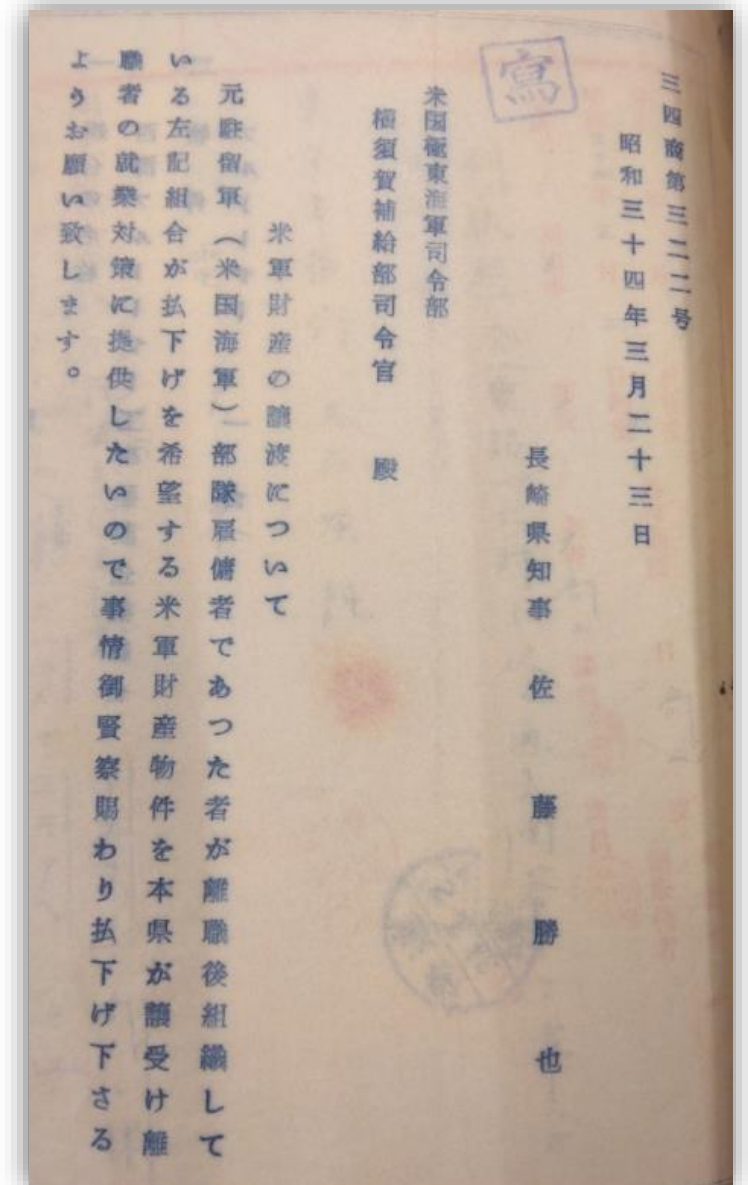 寫
三四商第三二二号
昭和三十四年三月二十三日
長崎県知事 佐藤勝也
米国極東海軍司令部
横須賀補給部司令官 殿
米軍財産の譲渡について
元駐留軍（米国海軍）部隊雇傭者であつた者が離職後組織して
いる左記組合が払下げを希望する米軍財産物件を本県が譲受け離
職者の就業対策に提供したいので事情御賢察賜わり払下げ下さる
ようお願い致します。